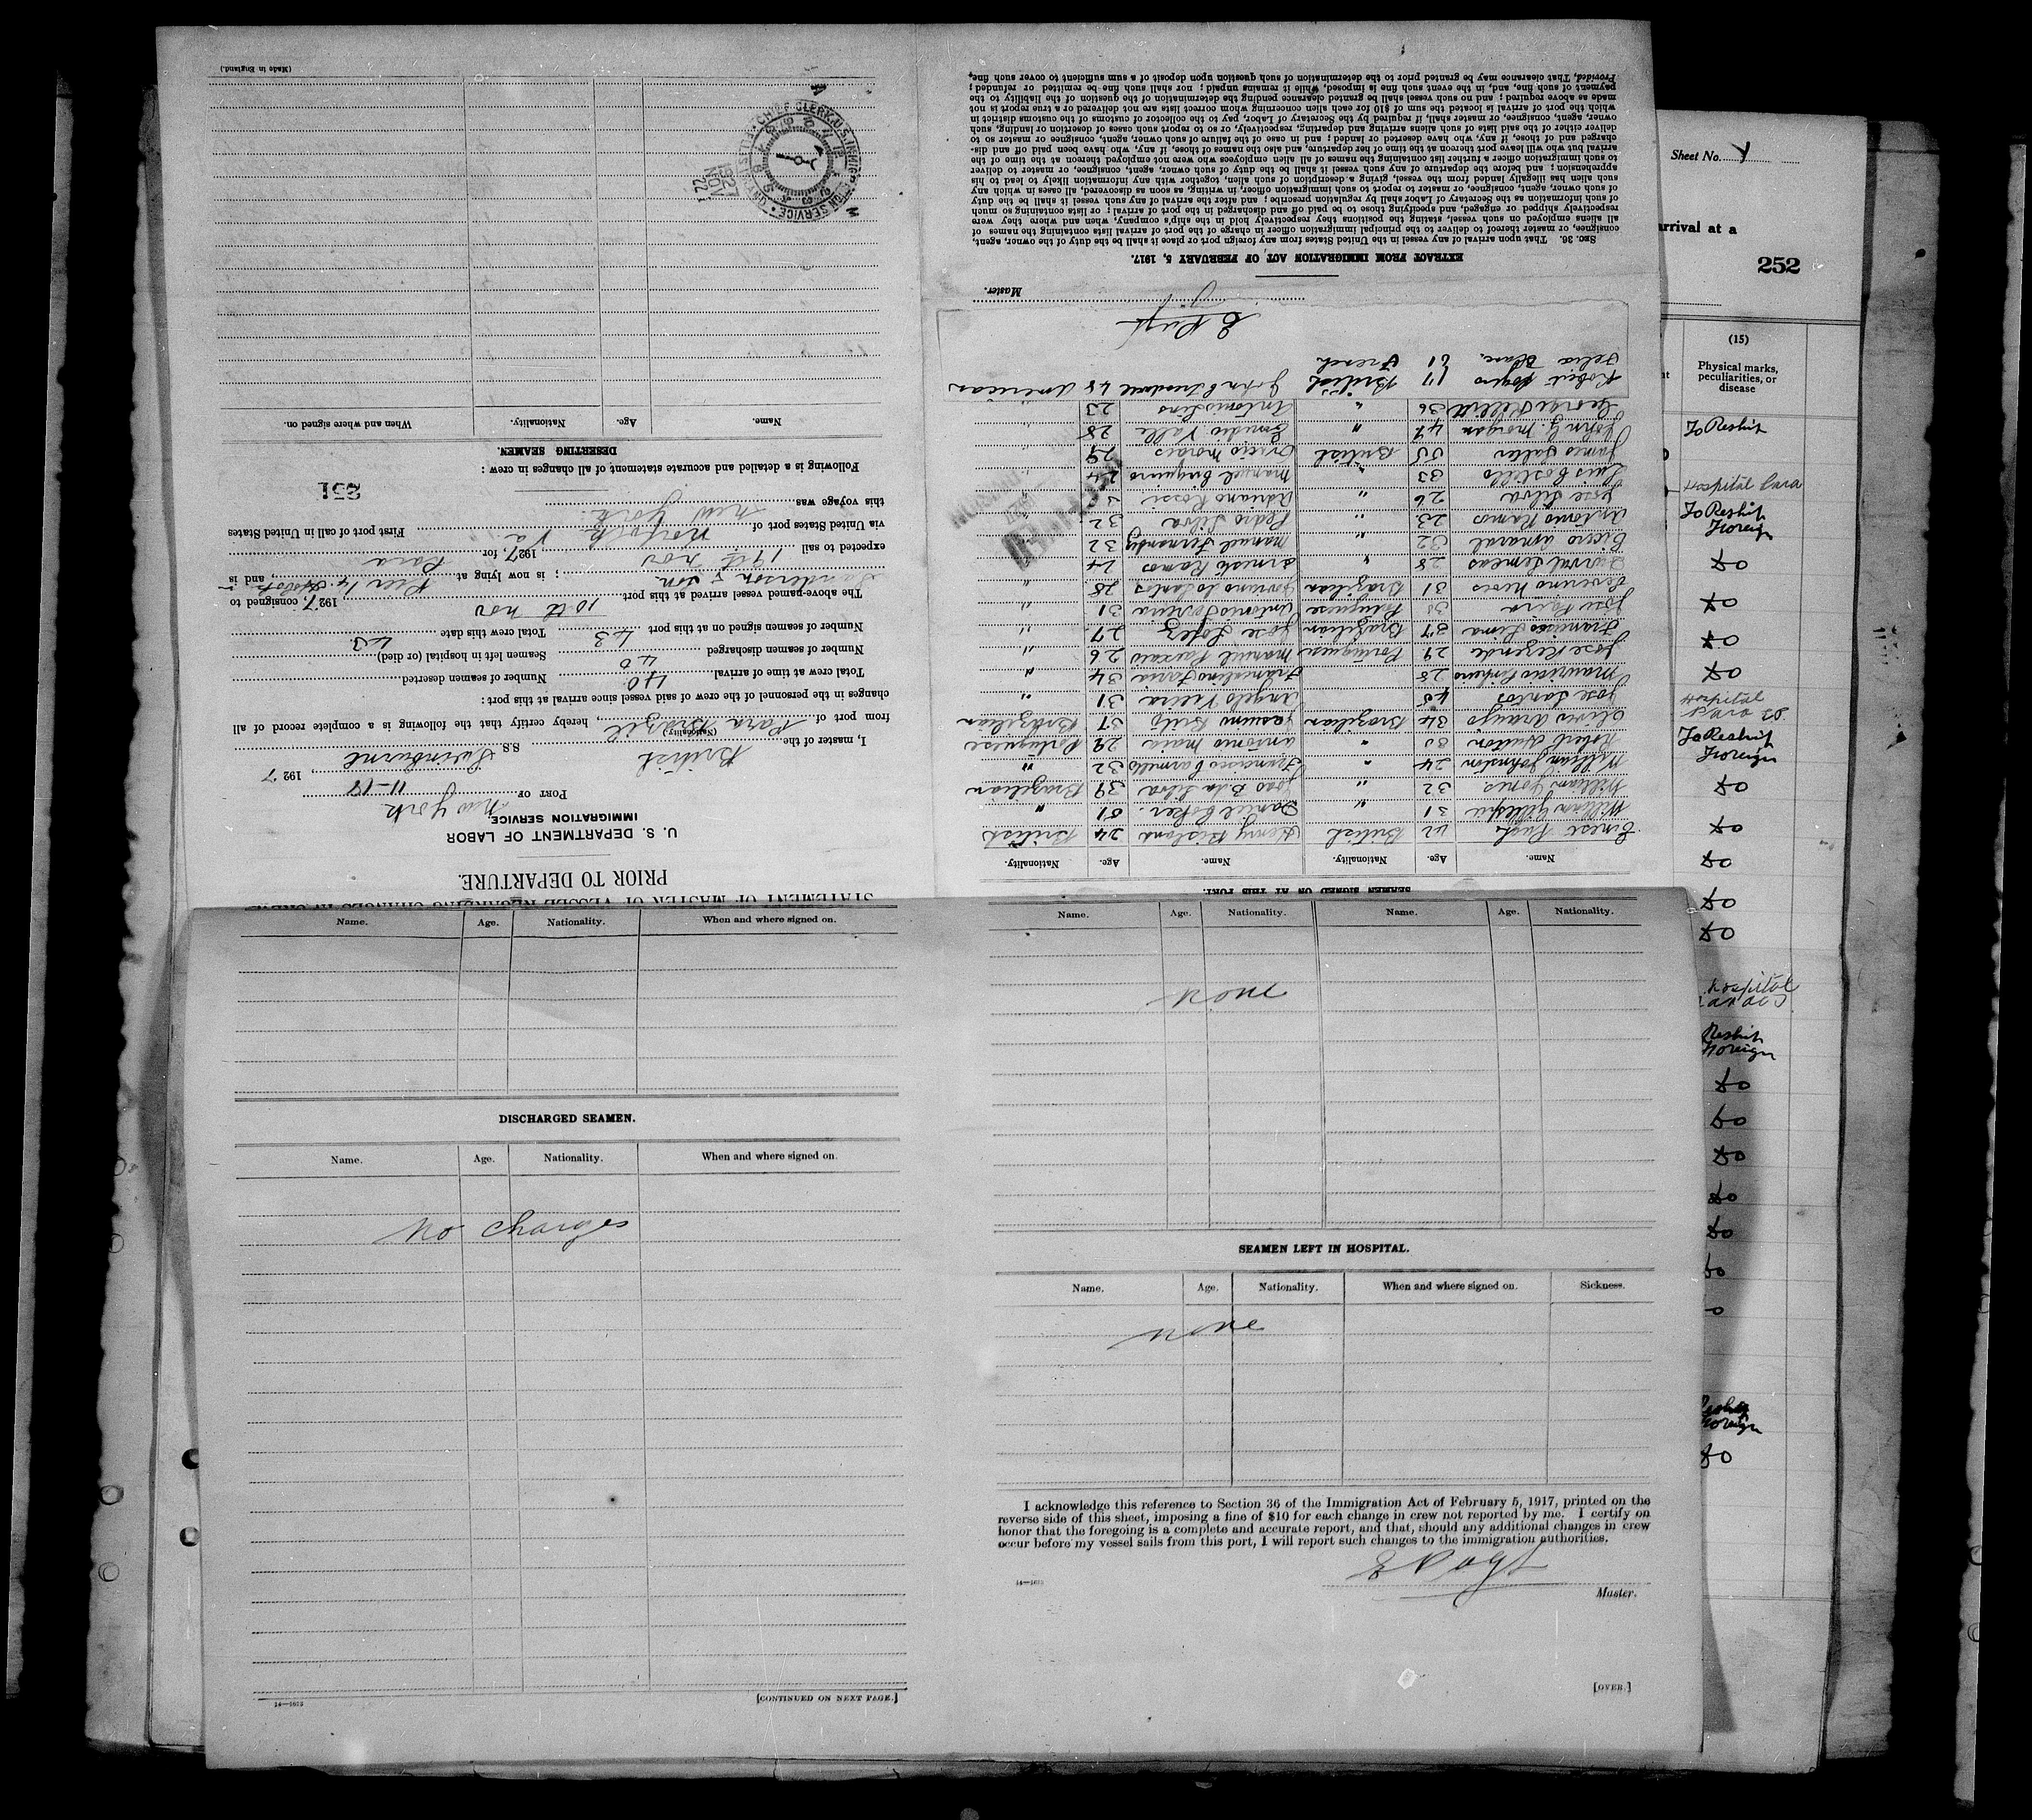 STATEMENT OF MASTER OF VESSEL REGARDING CHANGES IN CREW
PRIOR TO DEPARTURE.
U. S. DEPARTMENT OF LABOR
IMMIGRATION SERVICE
PORT OF New York
11-18, 1927
I, master of the British S.S. Swinburne
(Nationality)
from port of Para Brazil, hereby certify that the following is a complete record of all
changes in the personnel of the crew of said vessel since arrival at this port:
Total crew at time of arrival 40 Number of seamen deserted
Number of seamen discharged 40 Seamen left in hospital (or died)
Number of seamen signed on at this port 43 Total crew this date 43
The above-named vessel arrived at this port 10th Nov, 1927, consigned to
Sanderson & Son; is now lying at Pier 14, and is
expected to sail 19th Nov, 1927, for Para
via United States port of Norfolk Va. First port of call in United States
this voyage was New York.
251
Following is a detailed and accurate statement of all changes in crew:
DESERTING SEAMEN.
Name. Age. Nationality. When and where signed on.
(Made in England.)
CHIEF CLERK, U.S. IMMIGRATION SERVICE
1927 NOV 22
Name. Age. Nationality. When and where signed on.
DISCHARGED SEAMEN.
Name. Age. Nationality. When and where signed on.
No charges
14—1673
[CONTINUED ON NEXT PAGE.]
SEAMEN SIGNED ON AT THIS PORT.
Name. Age. Nationality. Name. Age. Nationality.
Ernest Pugh 42 British Henry Bisland 24 British
William Gillespie 31 " Daniel Coker. 51 "
William Jones 32 " Joao B. da Silva 39 Brazilian
William Johnston 24 " Francisco Carmelo 32 "
Robert Hutton 30 " Antonio Maia 29 Portuguese
Olivio Araujo 34 Brazilian Jasuino Brito 37 Brazilian
Jose Santos 45 Angelo Vieira 31 "
Mauricio 25 Francelino Faria 34 "
Jose Rezende 29 Portuguese Manuel Paixao 26 "
Francisco Lima 37 Brazilian Jose Lopez 27 "
Jose Faria Portuguese Antonio 31 "
Severino Neves 31 Brazilian dos Santos 28 "
Durval 28 " Ernesto Ramos 24
Cicero Amaral 32 " Manuel Fernandez 32
Antonio Ramos 23 " Pedro Silva 32
Jose Silva 26 " Adriano Rossi
Luis Costillo 33 Manuel 24
James Salter 55 British Morais 29
John G. Morgan 47 " Emidio Valle 28
George 36 " Antonio Lins 23
Robert Rogers 17 British John 48 American
Felia Blanc. 61 French
E Pugh
Master.
EXTRACT FROM IMMIGRATION ACT OF FEBRUARY 5, 1917.
SEC. 36. That upon arrival of any vessel in the United States from any foreign port or place it shall be the duty of the owner, agent,
consignee, or master thereof to deliver to the principal immigration officer in charge of the port of arrival lists containing the names of
all aliens employed on such vessel, stating the positions they respectively hold in the ship's company, when and where they were
respectively shipped or engaged, and specifying those to be paid off and discharged in the port of arrival; or lists containing so much
of such information as the Secretary of Labor shall by regulation prescribe; and after the arrival of any such vessel it shall be the duty
of such owner, agent, consignee, or master to report to such immigration officer, in writing, as soon as discovered, all cases in which any
such alien has illegally landed from the vessel, giving a description of such alien, together with any information likely to lead to his
apprehension; and before the departure of any such vessel it shall be the duty of such owner, agent, consignee, or master to deliver
to such immigration officer a further list containing the names of all alien employees who were not employed thereon at the time of the
arrival but who will leave port thereon at the time of her departure, and also the names of those, if any, who have been paid off and dis-
charged and of those, if any, who have deserted or landed; and in case of the failure of such owner, agent, consignee or master so to
deliver either of the said lists of such aliens arriving and departing, respectively, or so to report such cases of desertion or landing, such
owner, agent, consignee, or master shall, if required by the Secretary of Labor, pay to the collector of customs of the customs district in
which the port of arrival is located the sum of $10 for each alien concerning whom correct lists are not delivered or a true report is not
made as above required; and no such vessel shall be granted clearance pending the determination of the question of the liability to the
payment of such fine, and, in the event such fine is imposed, while it remains unpaid; nor shall such fine be remitted or refunded;
Provided, That clearance may be granted prior to the determination of such question upon deposit of a sum sufficient to cover such fine,
Name. Age. Nationality. Name. Age. Nationality.
None
SEAMEN LEFT IN HOSPITAL.
Name. Age. Nationality. When and where signed on. Sickness.
None
I acknowledge this reference to Section 36 of the Immigration Act of February 5, 1917, printed on the
reverse side of this sheet, imposing a fine of $10 for each change in crew not reported by me. I certify on
honor that the foregoing is a complete and accurate report, and that, should any additional changes in crew
occur before my vessel sails from this port, I will report such changes to the immigration authorities.
E Pugh
Master.
14—1673
[OVER.]
Sheet No.
arrival at a
252
(15)
Physical marks,
peculiarities, or
disease
To Reship
Hospital Para
To Reship
Foreign
do
do
do
do
Hospital
Para
To Reship
Foreign
do
do
do
do
do
hospital
Reship
Foreign
do
do
do
do
do
do
o
Reship
Foreign
do